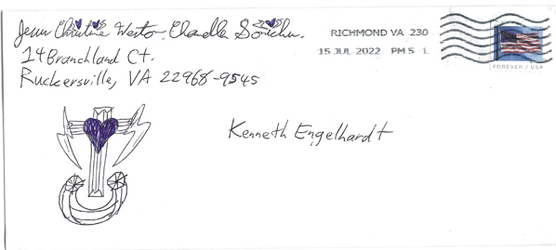 Jesus Christine Weston Chandler
14 Branchland Ct.
Ruckersville, VA 22968-9545
RICHMOND VA 230
15 JUL 2022 PM 5 L
FOREVER / USA
Kenneth Engelhardt